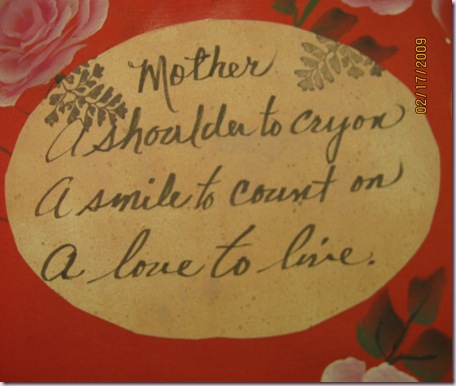 Mother
A shoulder to cry on
A smile to count on
A love to live.
02/17/2009